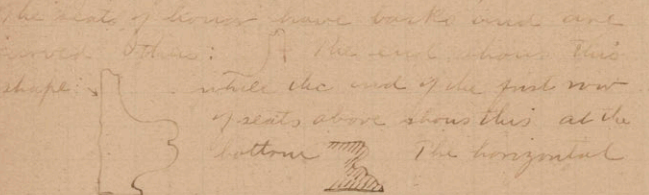 The seats of honor have backs and are
curved thus: The end shows this
shape: while the end of the first row
of seats above shows this at the
bottom The horizontal